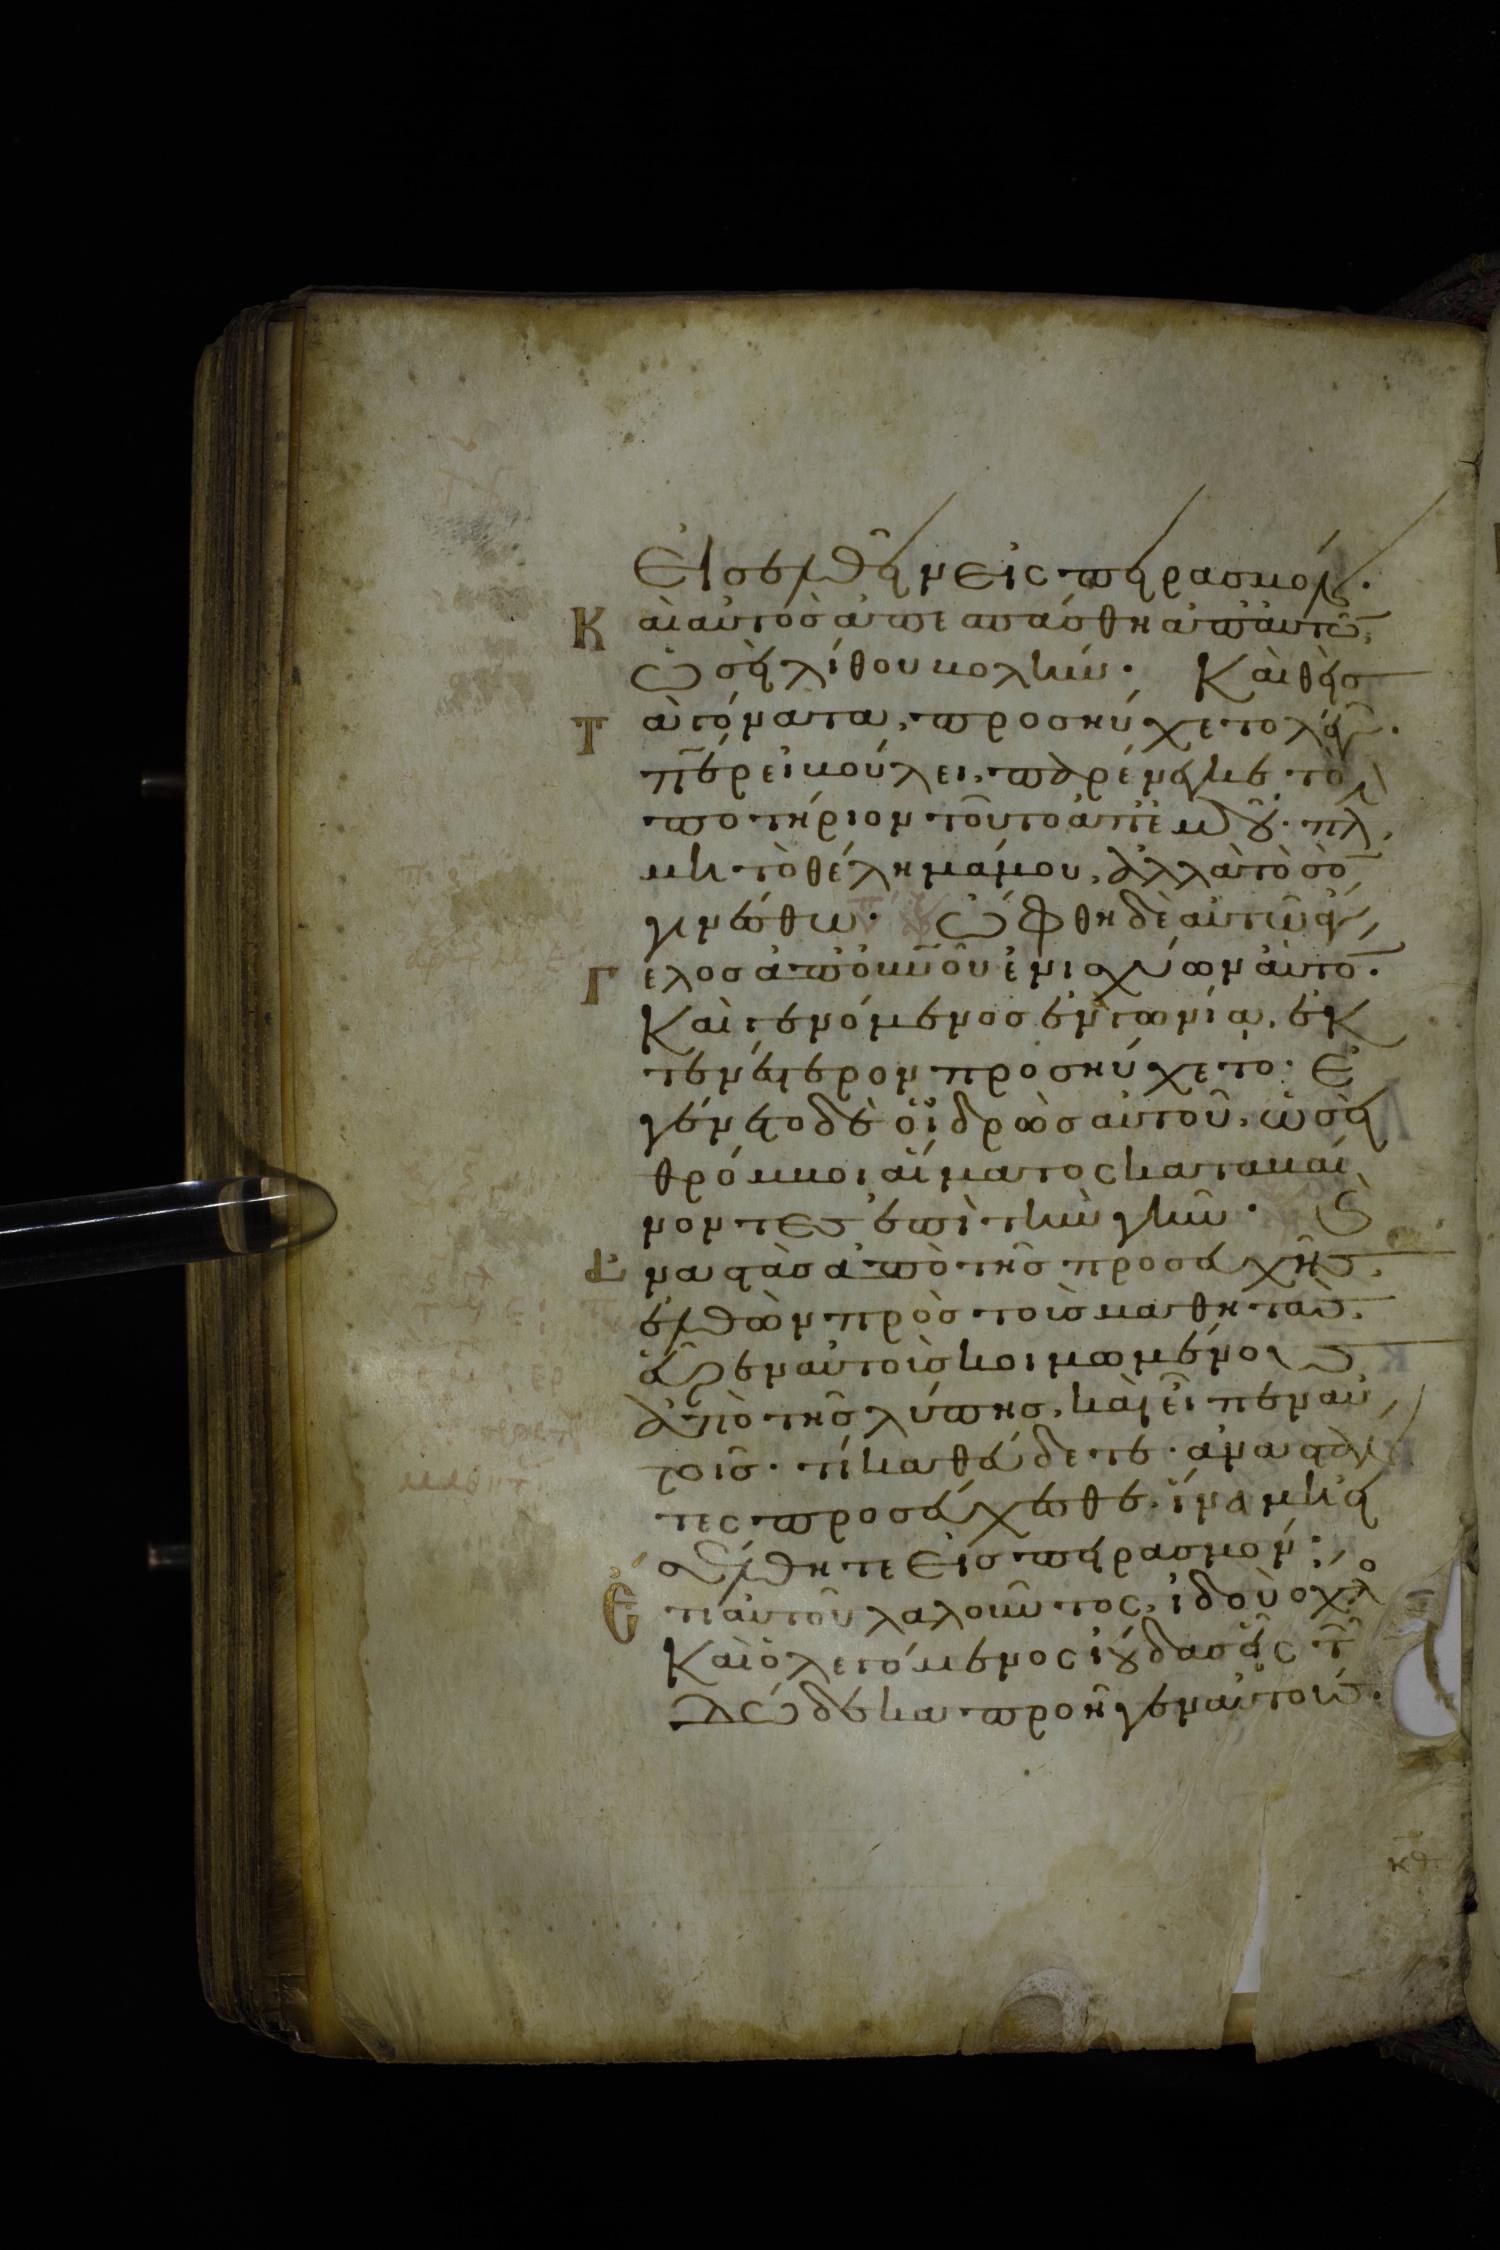 εἰσελθεῖν εἰς πειρασμόν.
Καὶ αὐτὸς ἀπεσπάσθη ἀπ' αὐτῶ,
ὡσεὶ λίθου βολὴν. Καὶ θεὶσ
τὰ γόνατα, προσηύχετο λέγων.
περ εἰ βούλει, παρένεγκε τὸ
ποτήριον τοῦτο ἀπ' ἐμοῦ. πλ
μὴ τὸ θέλημά μου, ἀλλὰ τὸ σὸ
γινέσθω. Ὤφθη δὲ αὐτῶ ἄγ
γελοσ ἀπ' οὐνοῦ ἐνισχύων αὐτό.
Καὶ γενόμενοσ ἐν ἀγωνία, ἐκ
τενέστερον προσηύχετο. Ἐ
γένετο δὲ ὁ ἱδρὼσ αὐτοῦ, ὡσεὶ
θρόμβοι αἵματος καταβαί
νοντες ἐπὶ τὴν γῆν. Κ
ἀναστὰσ ἀπὸ τῆσ προσευχῆσ,
ἐλθὼν πρὸσ τοὺσ μαθητὰσ,
εὗρεν αὐτοὺσ κοιμωμένουσ
ἀπὸ τῆσ λύπησ, καὶ εἶπεν αὐ
τοῖσ. τί καθεύδετε. ἀναστάν
τες προσεύχεσθε. ἵνα μὴ εἰ
σέλθητε εἰσ πειρασμόν.
Ἔτι αὐτοῦ λαλοῦντος, ἰδοὺ ὄχλο
Καὶ ὁ λεγόμενος ἰούδασ εἷς τῶ
δώδεκα προῆγεν αὐτούσ.
κθ